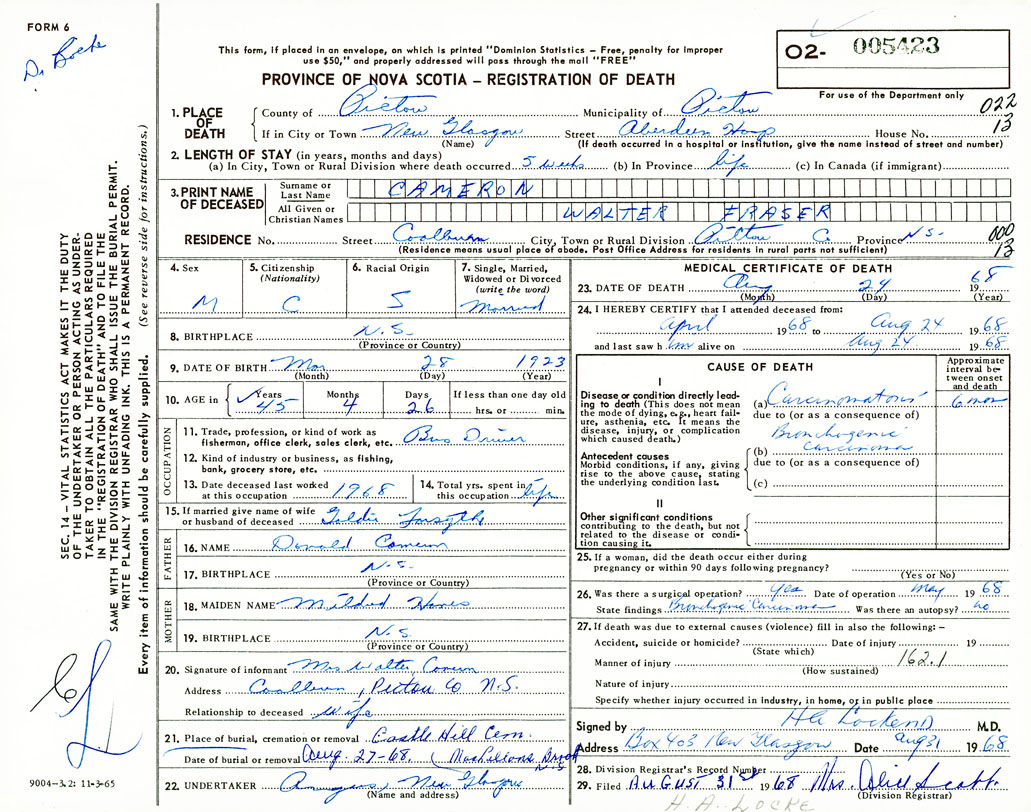 FORM 6
Dr Locke
This form, if placed in an envelope, on which is printed "Dominion Statistics – Free, penalty for improper
use $50," and properly addressed will pass through the mail "FREE"
PROVINCE OF NOVA SCOTIA – REGISTRATION OF DEATH
O2- 005423
For use of the Department only
022
13
1. PLACE OF DEATH
County of Pictou Municipality of Pictou
If in City or Town New Glasgow Street Aberdeen Hosp House No.
(Name) (If death occurred in a hospital or institution, give the name instead of street and number)
2. LENGTH OF STAY (in years, months and days)
(a) In City, Town or Rural Division where death occurred 5 weeks (b) In Province life (c) In Canada (if immigrant)
3. PRINT NAME OF DECEASED
Surname or Last Name CAMERON
All Given or Christian Names WALTER FRASER
RESIDENCE No. Street Coalburn City, Town or Rural Division Pictou C. Province N.S.
(Residence means usual place of abode. Post Office Address for residents in rural parts not sufficient)
000
13
4. Sex M
5. Citizenship (Nationality) C
6. Racial Origin S
7. Single, Married, Widowed or Divorced (write the word) Married
8. BIRTHPLACE N.S.
(Province or Country)
9. DATE OF BIRTH Mar 28 1923
(Month) (Day) (Year)
10. AGE in Years 45 Months 4 Days 26 If less than one day old hrs. or min.
OCCUPATION
11. Trade, profession, or kind of work as
fisherman, office clerk, sales clerk, etc. Bus Driver
12. Kind of industry or business, as fishing,
bank, grocery store, etc.
13. Date deceased last worked
at this occupation 1968
14. Total yrs. spent in
this occupation life
15. If married give name of wife
or husband of deceased Goldie Forsyth
FATHER
16. NAME Donald Cameron
17. BIRTHPLACE N.S.
(Province or Country)
MOTHER
18. MAIDEN NAME Mildred
19. BIRTHPLACE N.S.
(Province or Country)
20. Signature of informant Mrs Walter Cameron
Address Coalburn, Pictou Co N.S.
Relationship to deceased wife
21. Place of burial, cremation or removal Castle Hill Cem.
Date of burial or removal Aug. 27-68. N.S.
22. UNDERTAKER New Glasgow
(Name and address)
MEDICAL CERTIFICATE OF DEATH
23. DATE OF DEATH Aug 24 1968
(Month) (Day) (Year)
24. I HEREBY CERTIFY that I attended deceased from:
April 1968 to Aug 24 1968
and last saw him alive on Aug 24 1968
CAUSE OF DEATH
Approximate interval between onset and death
I
Disease or condition directly leading to death (This does not mean the mode of dying, e.g., heart failure, asthenia, etc. It means the disease, injury, or complication which caused death.)
(a) Carcinomatosis 6 mos
due to (or as a consequence of)
Antecedent causes
Morbid conditions, if any, giving rise to the above cause, stating the underlying condition last.
(b) Bronchogenic Carcinoma
due to (or as a consequence of)
(c)
II
Other significant conditions
contributing to the death, but not related to the disease or condition causing it.
25. If a woman, did the death occur either during
pregnancy or within 90 days following pregnancy?
(Yes or No)
26. Was there a surgical operation? Yes Date of operation May 1968
State findings Bronchogenic Carcinoma Was there an autopsy? no
27. If death was due to external causes (violence) fill in also the following: –
Accident, suicide or homicide? Date of injury 19
(State which)
Manner of injury 162.1
(How sustained)
Nature of injury
Specify whether injury occurred in industry, in home, or in public place
Signed by HA Locke MD M.D.
Address Box 403 New Glasgow Date Aug 31 1968
28. Division Registrar's Record Number
29. Filed AUGUST 31st 1968 Mrs. Alice Scott
(Division Registrar)
H. A. LOCKE
SEC. 14 – VITAL STATISTICS ACT MAKES IT THE DUTY
OF THE UNDERTAKER OR PERSON ACTING AS UNDER-
TAKER TO OBTAIN ALL THE PARTICULARS REQUIRED
IN THE "REGISTRATION OF DEATH" AND TO FILE THE
SAME WITH THE DIVISION REGISTRAR WHO SHALL ISSUE THE BURIAL PERMIT.
WRITE PLAINLY WITH UNFADING INK. THIS IS A PERMANENT RECORD.
Every item of information should be carefully supplied. (See reverse side for instructions.)
9004-3.2: 11-3-65